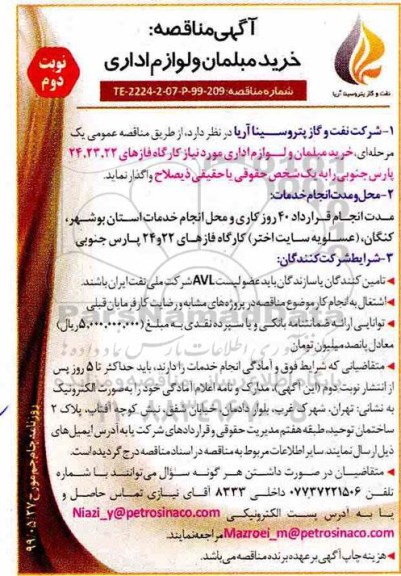 آگهی مناقصه:
خرید مبلمان و لوازم اداری
نوبت دوم
نفت و گاز پتروسینا آریا
شماره مناقصه: TE-2224-2-07-P-99-209
۱- شرکت نفت و گاز پتروسینا آریا در نظر دارد، از طریق مناقصه عمومی یک
مرحله‌ای، خرید مبلمان و لوازم اداری مورد نیاز کارگاه فازهای ۲۴،۲۳،۲۲
پارس جنوبی را به یک شخص حقوقی یا حقیقی ذیصلاح واگذار نماید.
۲- محل و مدت انجام خدمات:
مدت انجام قرارداد ۴۰ روز کاری و محل انجام خدمات استان بوشهر،
کنگان، (عسلویه سایت اختر) کارگاه فازهای ۲۲ و ۲۴ پارس جنوبی
۳- شرایط شرکت کنندگان:
تامین کنندگان یا سازندگان باید عضو لیست AVL شرکت ملی نفت ایران باشند.
اشتغال به انجام کار موضوع مناقصه در پروژه‌های مشابه و رضایت کارفرمایان قبلی
توانایی ارائه ضمانتنامه بانکی و یا سپرده نقدی به مبلغ (۵,۰۰۰,۰۰۰,۰۰۰ ریال)
معادل پانصد میلیون تومان
متقاضیانی که شرایط فوق و آمادگی انجام خدمات را دارند، باید حداکثر تا ۵ روز پس
از انتشار نوبت دوم (این آگهی)، مدارک و نامه اعلام آمادگی خود را به صورت الکترونیک
به نشانی: تهران، شهرک غرب، بلوار دادمان، خیابان شفق، نبش کوچه آفتاب، پلاک ۲
ساختمان توحید، طبقه هفتم مدیریت حقوقی و قراردادهای شرکت یا به آدرس ایمیل‌های
ذیل ارسال نمایند. سایر اطلاعات مربوط به مناقصه در اسناد مناقصه درج گردیده است.
متقاضیان در صورت داشتن هر گونه سؤال می‌توانند با شماره
تلفن ۰۷۷۳۷۲۲۱۵۰۶ داخلی ۸۳۳۳ آقای نیازی تماس حاصل و
یا به آدرس پست الکترونیکی Niazi_y@petrosinaco.com
Mazroei_m@petrosinaco.com مراجعه نمایند.
هزینه چاپ آگهی بر عهده برنده مناقصه می‌باشد.
روزنامه جام جم مورخ ۹۹.۰۵.۲۷
ParsNamadData